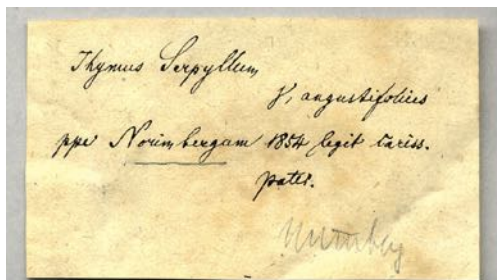 Thymus Serpyllum
γ, angustifolius
ppe Norimbergam 1854 legit cariss.
pater.
Nürnberg